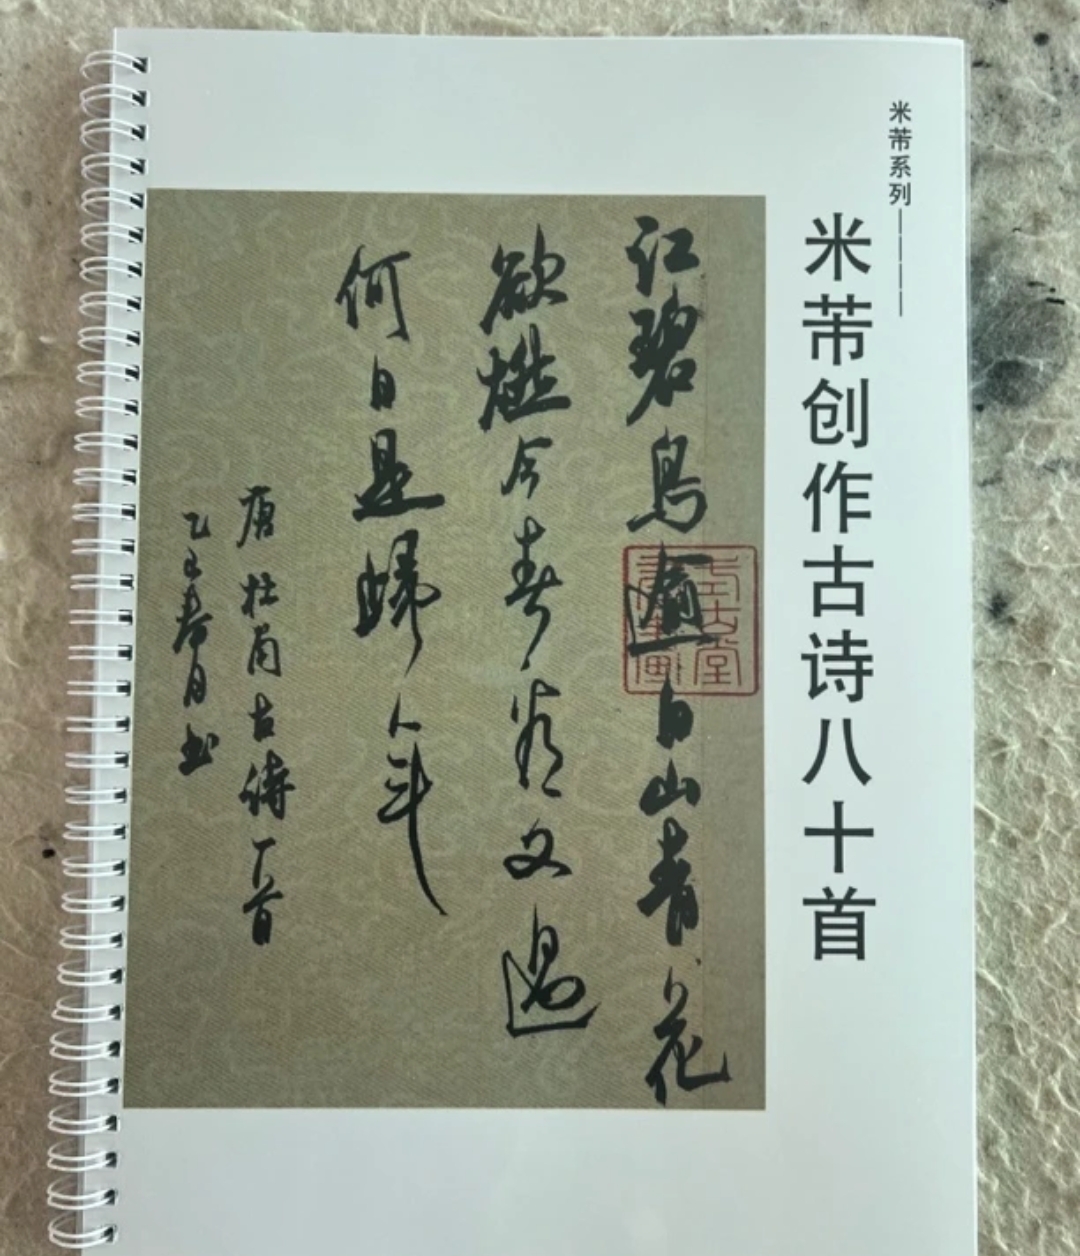 米芾系列————
米芾创作古诗八十首
江碧鳥逾白山青花
欲燃今春看又過
何日是歸年
唐杜甫古詩一首
乙巳春月书